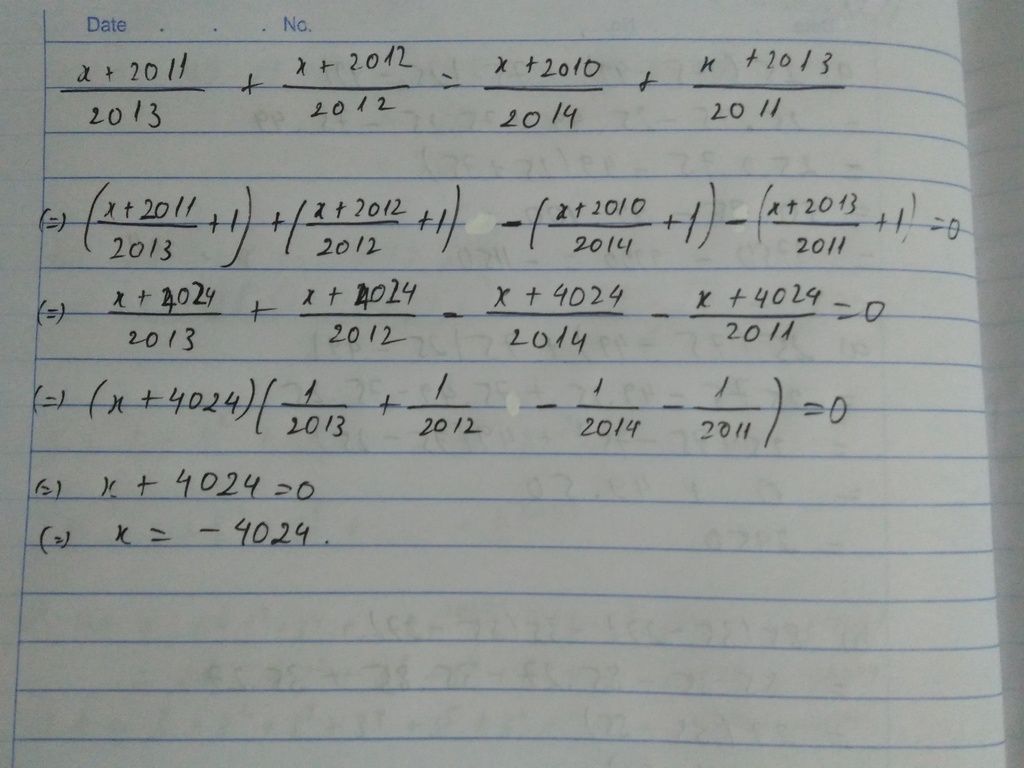 Date . . . No.
x + 2011/2013 + x + 2012/2012 = x + 2010/2014 + x + 2013/2011
(=) (x + 2011/2013 + 1) + (x + 2012/2012 + 1) - (x + 2010/2014 + 1) - (x + 2013/2011 + 1) = 0
(=) x + 4024/2013 + x + 4024/2012 - x + 4024/2014 - x + 4024/2011 = 0
(=) (x + 4024)(1/2013 + 1/2012 - 1/2014 - 1/2011) = 0
(=) x + 4024 = 0
(=) x = - 4024.